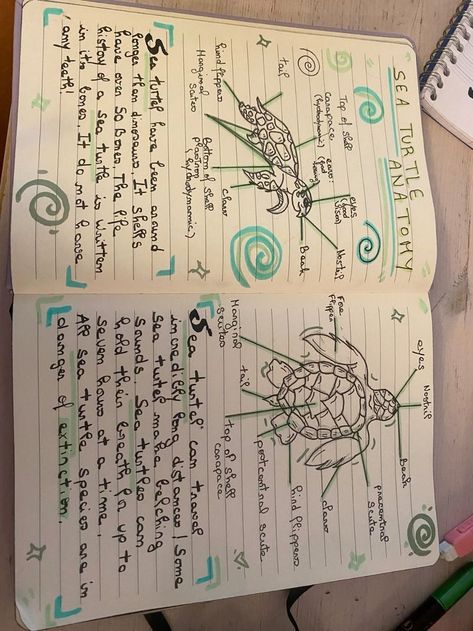 SEA TURTLE
ANATOMY
Top of shell
Carapace
(hydrodynamic)
ears:
(good
hearing)
eyes
(good
vision)
Nostril
Beak
tail
hind flippers
Marginal
Scutes
Bottom of shell
plastron
(hydrodynammic)
claw
Sea turtel have been around
longer them dinosaurs. It shells
have over 50 bones. The life
history of a sea turtle is written
in its bones. It do not have
any teeth!
eyes
Nostril
Beak
precentral
scute
Fore
flipper
claw
hind flippers
postcentral scute
top of shell
carapace
tail
Marginal
scutes
Sea turtel can travel
incredibly long distances! Some
sea turtel make belching
sounds. Sea turtles can
hold their breath for up to
seven hours at a time.
All sea turtle species are in
danger of extination.